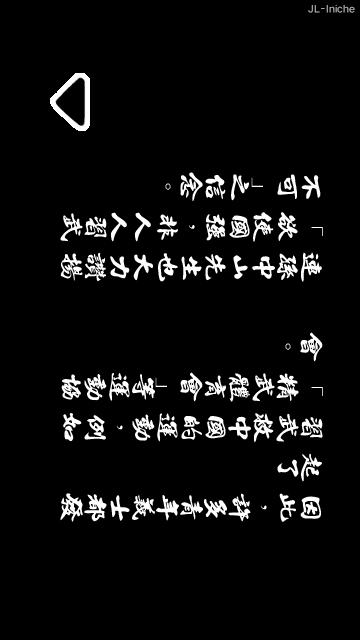 JL-Iniche
因此，許多青年義士都發
起了
習武救中國的運動，例如
「精武體育會」等運動協
會。
連孫中山先生也大力讚揚
「欲使國強，非人人習武
不可」之信念。